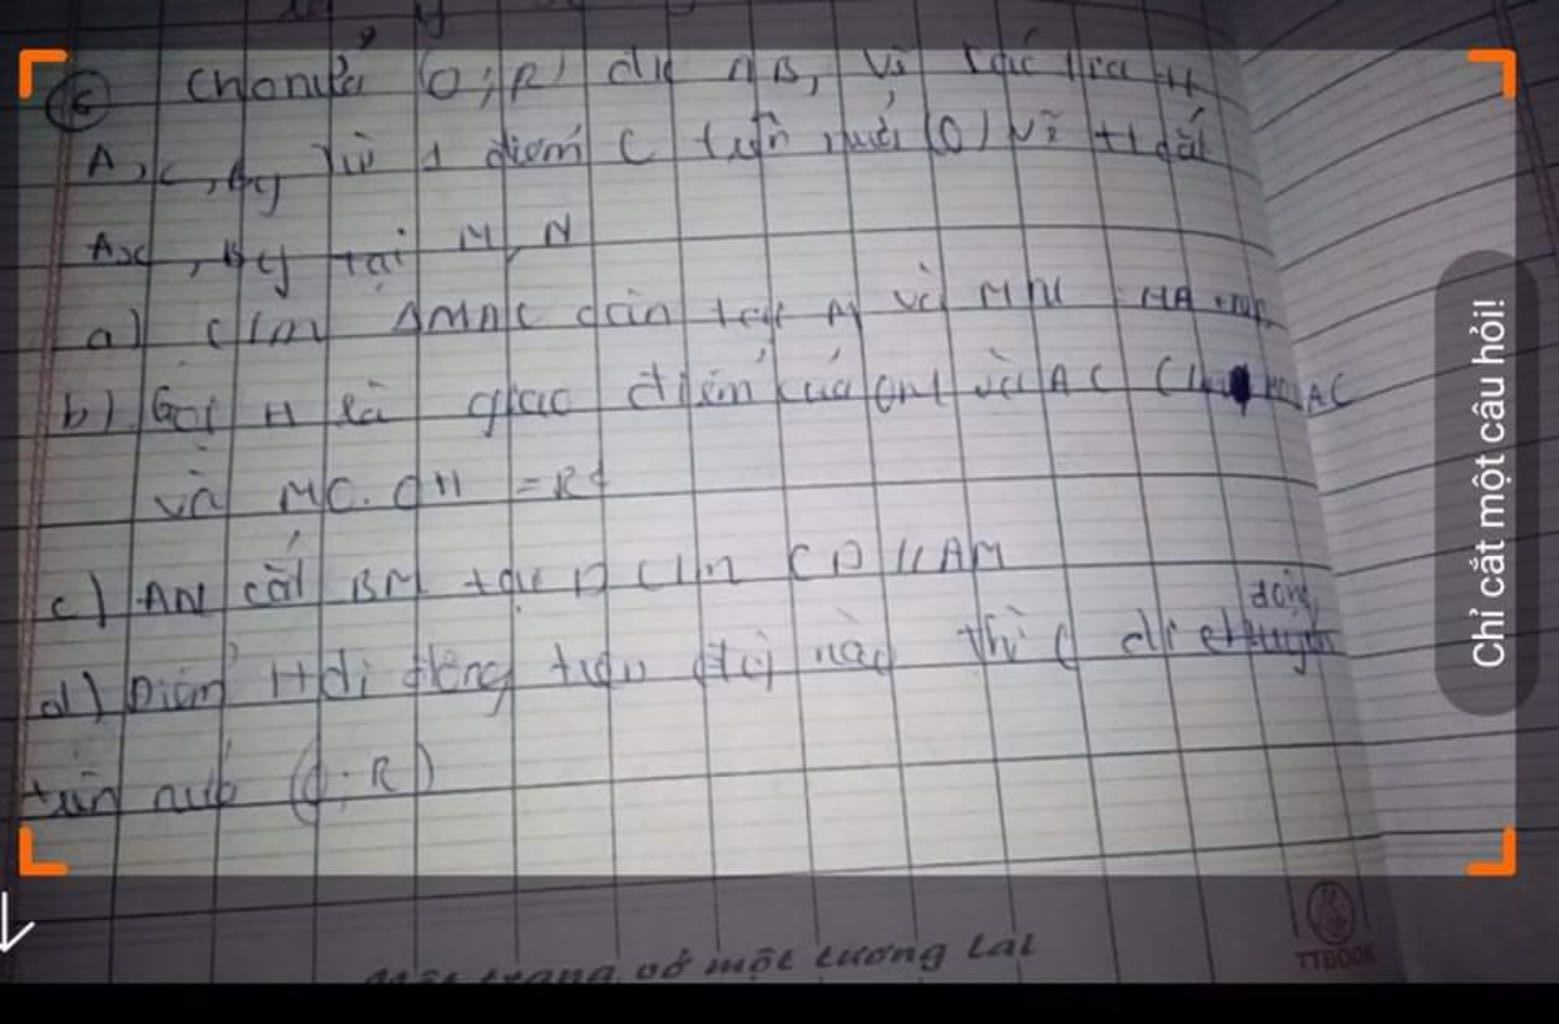 Cho nửa (O; R) đk AB, vẽ các tia tt
Ax, By Từ 1 điểm C trên nửa (O) vẽ tt cắt
Ax, By tại M, N
a) C/m ΔMAC cân tại M và
b) Gọi H là giao điểm của OM và AC C/m AC
và MC. OH = R
c) AN cắt BM tại D C/m CD // AM
động
d) Điểm H di động trên nào thì C di
trên nửa (O; R)
Chỉ cắt một câu hỏi!
trang vở một tương lai
TTBOOK